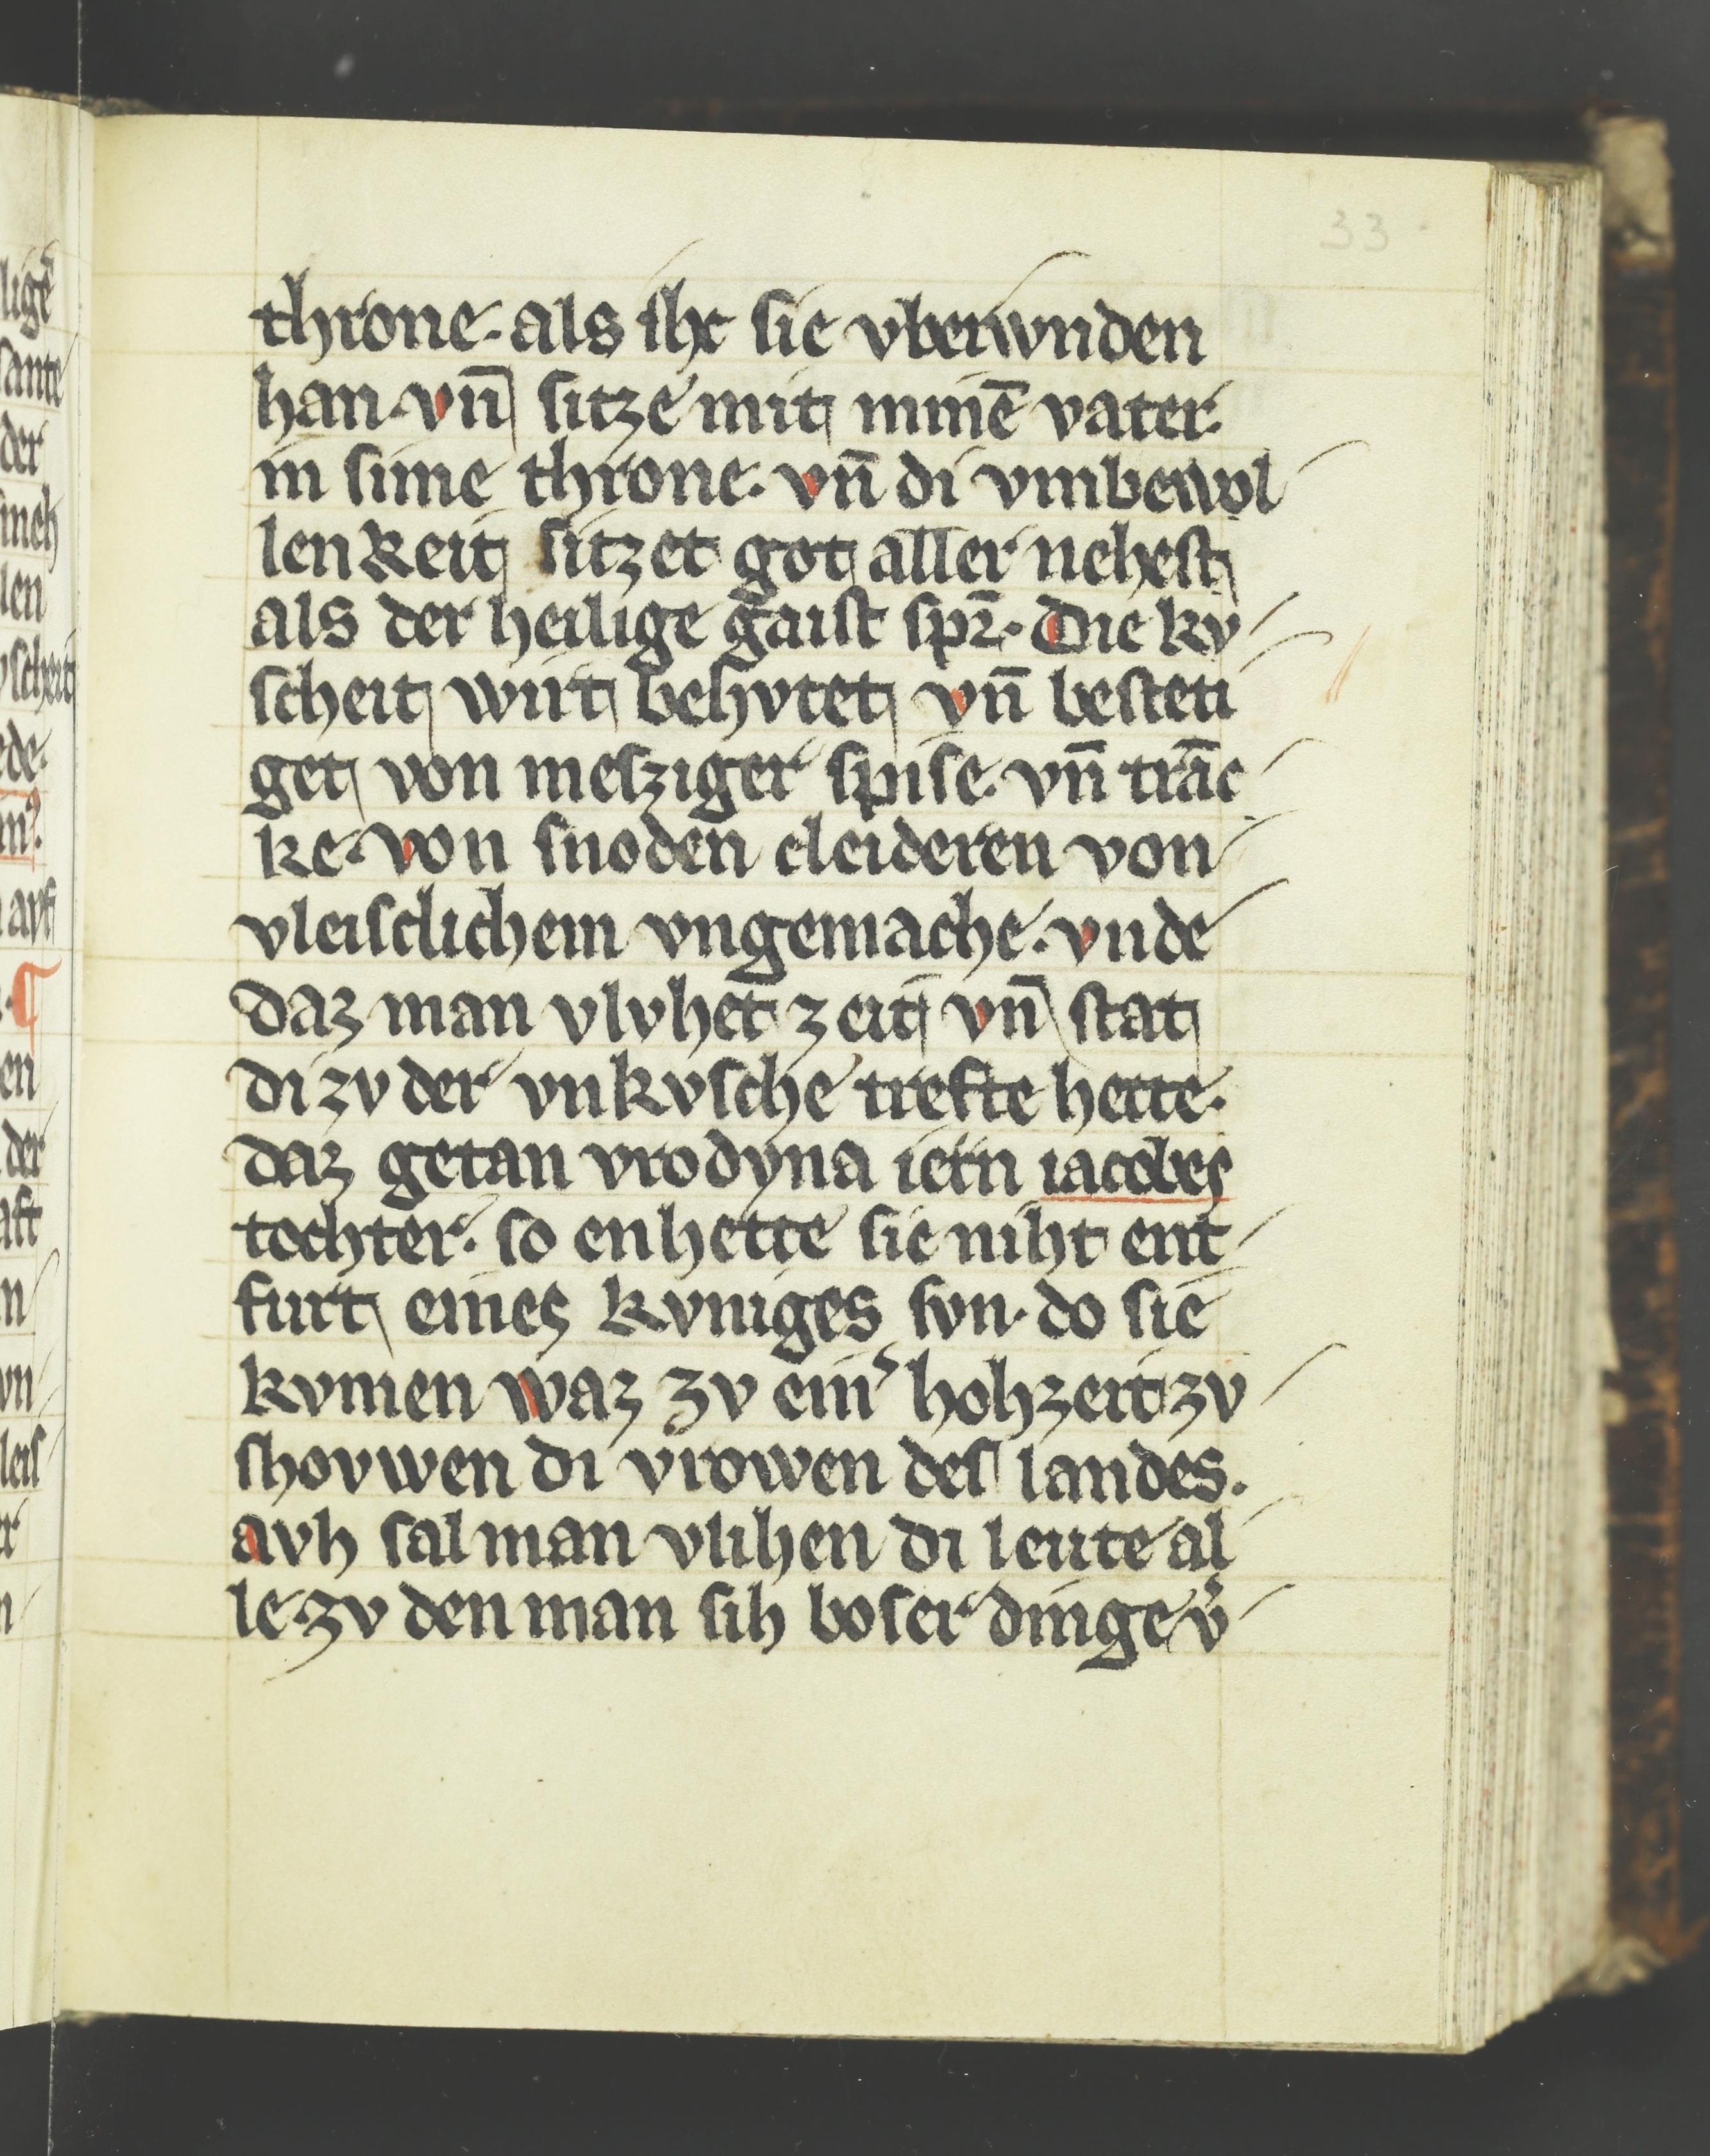 33
throne. als ihc sie vberwnden
han. vn̄ sitze mit minē vater.
in sime throne. vn̄ di vmbewol
lenkeit sitzet got aller nehest
als der heilige gaist spr̄. Die kv
scheit wirt behvtet vn̄ besteti
get von mesziger spise. vn̄ trāc
ke. von snoden cleideren von
vleisclichem vngemache. vnde
daz man vlvhet zeit vn̄ stat
di zv der vnkvsche trefte hette.
daz getan vrodyna ietn iacobes
tochter. so enhette sie niht ent
furt eines kvniges svn. do sie
kvmen waz zv ein͛ hohzeit zv
shovwen di vrowen des landes.
avh sal man vlihen di leute al
le. zv den man sih boser dinge v͛